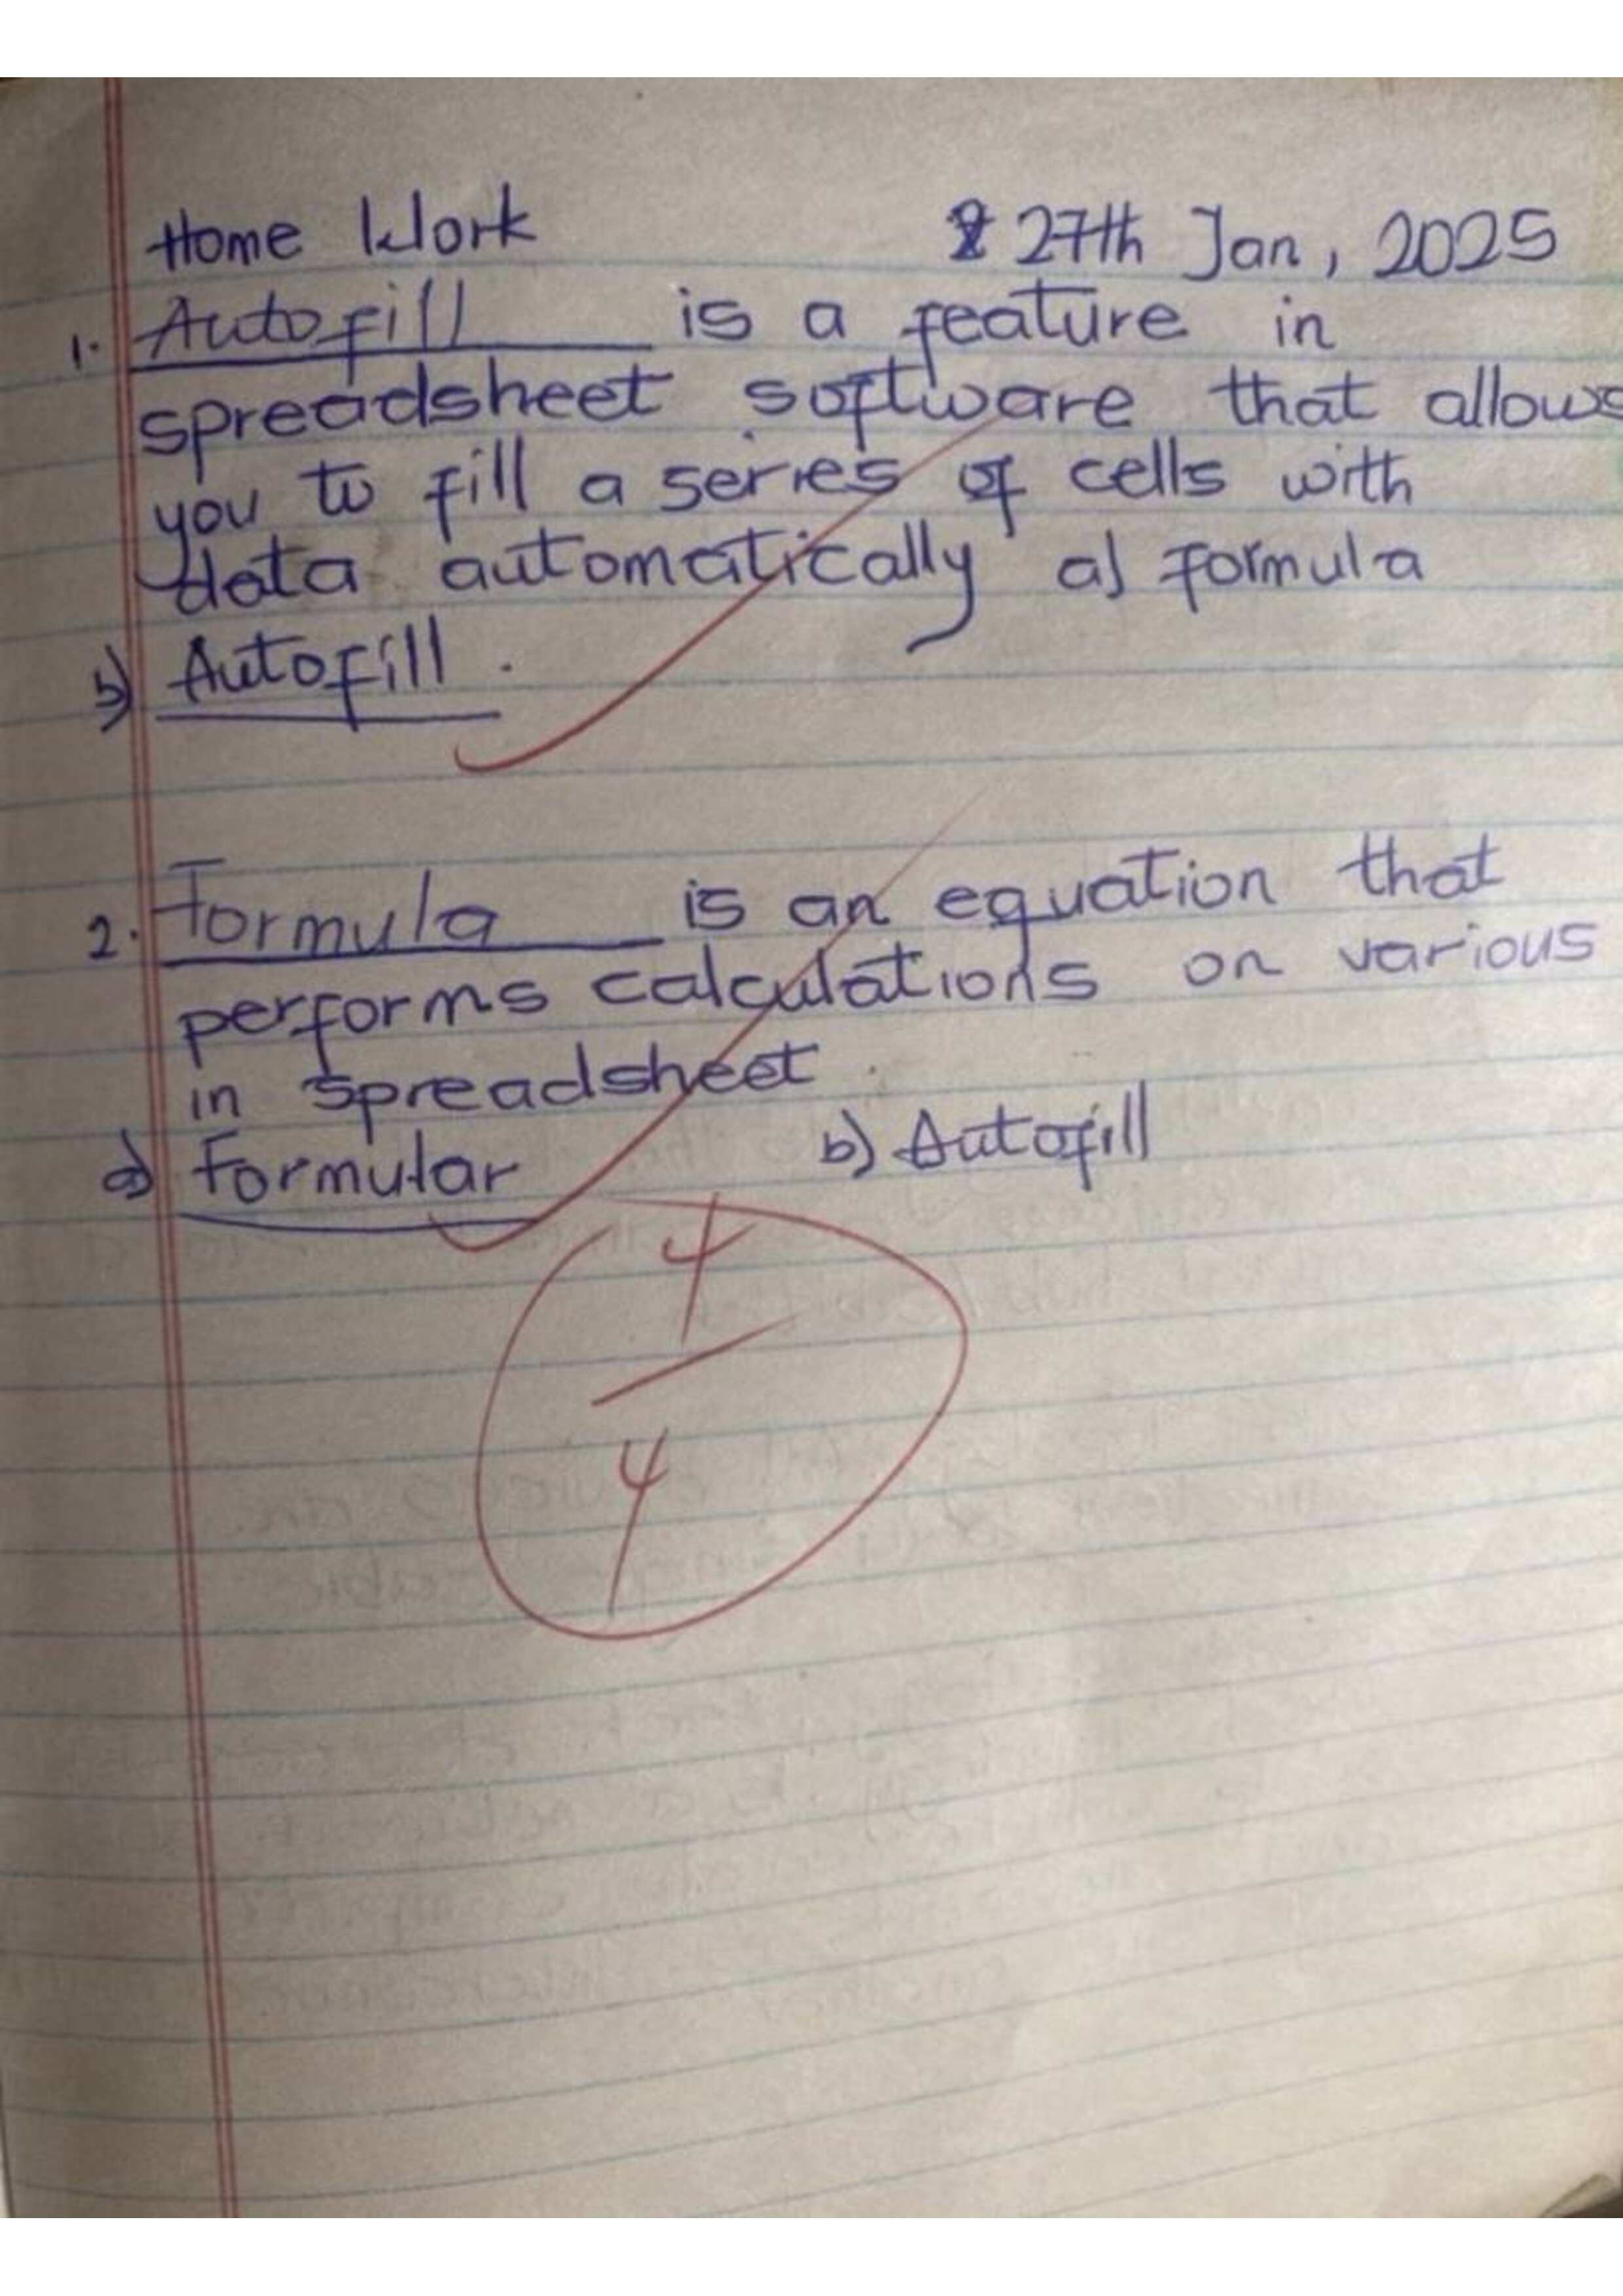 Home Work 27th Jan, 2025
1. Autofill is a feature in
spreadsheet software that allows
you to fill a series of cells with
data automatically a) formula
b) Autofill.
2. Formula is an equation that
performs calculations on various
in spreadsheet.
a) Formular b) Autofill
4
4